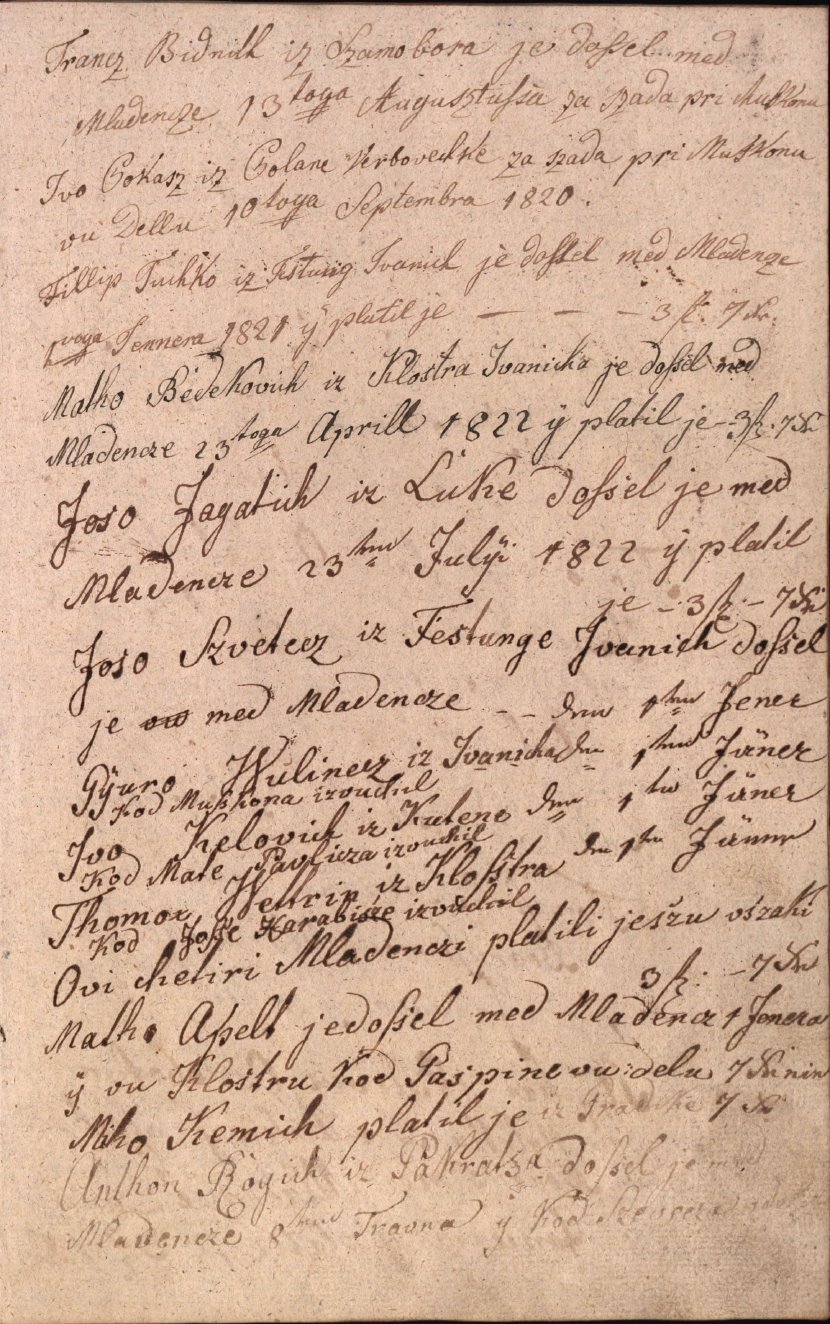 Francz Bidnik iz Szamobora je dossel med
Mladencze 13toga Augusztussa za szada pri Muskonu
Ivo Gokasz iz Golane Verbovechke za szada pri Muskonu
vu Dellu 10toga Septembra 1820.
Fillip Tuchko iz Festung Ivanich je dossel med Mladenze
1voga Jennera 1821 ÿ platil je — — — 3 fl. 7 Kr.
Matho Bedekovich iz Klostra Ivanicha je dossel med
Mladencze 23toga Aprill 1822 ÿ platil je - 3 fl. 7 Kr
Joso Jagatich iz Luke dossel je med
Mladencze 23ten Julÿi 1822 ÿ platil
je - 3 fl - 7 Kr
Joso Szvetecz iz Festunge Ivanich dossel
je med Mladencze - - den 1ten Jener
Gÿuro Wulinecz iz Ivanicha den 1ten Jäner
Kod Muskona izvuchil
Ivo Kelovich iz Kutene den 1ten Jäner
Kod Mate Pavlicza izvuchil
Thomaz iz Klostra den 1ten Jänner
Kod Josse Harabisze izvuchil
Ovi chetiri Mladenczi platili jeszu vszaki
3 fl. - 7 Kr
Matho Apelt je dossel med Mladencz 1 Jenera
ÿ vu Klostru kod Paspine vu delu 7 Kr
Miko Kemich platil je iz Gradiske 7 Kr
Anthon Rogich iz Pakratza dossel je med
Mladencze 8ten Travna ÿ kod